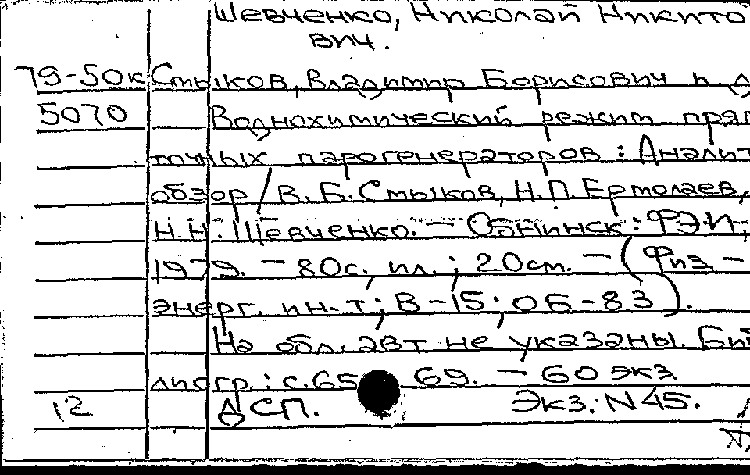 Шевченко, Николай Никито
вич.
79-50к Стыков, Владимир Борисович и д
5070 Воднохимический режим пря
точных парогенераторов: Аналит
обзор / В.Б. Стыков, Н.П. Ермолаев,
Н.Н. Шевченко. – Обнинск: ФЭИ,
1979. – 80с. ил.; 20см. – (Физ –
энерг. ин-т; В-15; ОБ-83).
На обл. авт не указаны. Биб
лиогр.: с.65 69. – 60 экз
12 ДСП. Экз. N 45.